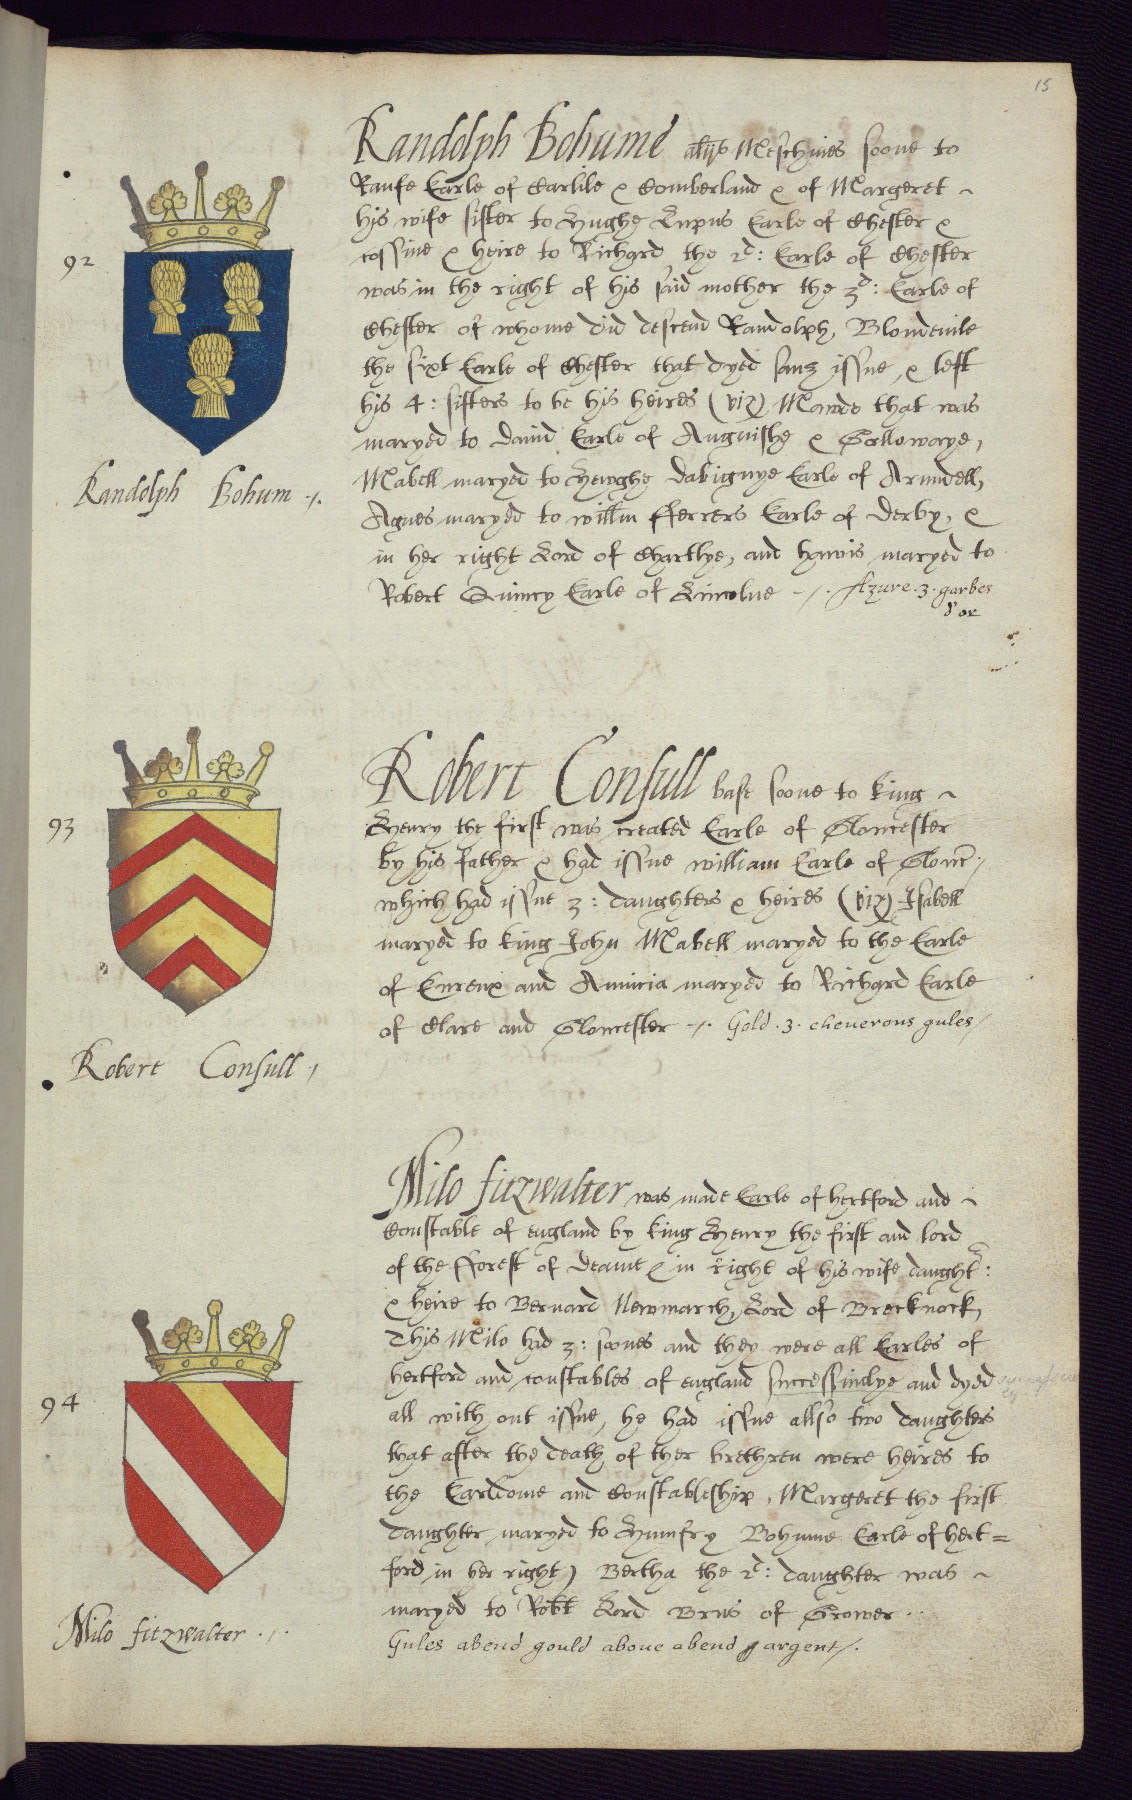 15
Randolph Bohume alijs Meschines soone to
Raufe Earle of Carlile & Comberland & of Margeret
his wife sister to Hughe Lupus Earle of Chester &
cossine & heire to Richard the 2d: Earle of Chester
was in the right of his said mother the 3d: Earle of
Chester of whome did descend Randolph, Blondevile
the sixt Earle of Chester that dyed sanz issue, & left
his 4: sisters to be his heires (viz) Mawde that was
maryed to david Earle of Anguishe & Gallowaye,
Mabell maryed to Hewghe dabignye Earle of Arundell,
Agnes maryed to willm fferrers Earle of derby, &
in her right Lord of Chartlye, and hawis maryed to
Robert Quincy Earle of Lincolne -/. Azure .3. garbes
d'or
92
Randolph Bohum -/.
Robert Consull base soone to king
Henry the first was created Earle of Gloucester
by his father & had issue william Earle of Glouc: /
which had issue 3: daughters & heires (viz) Isabell
maryed to king John Mabell maryed to the Earle
of Eureux and Amicia maryed to Richard Earle
of Clare and Gloucester -/. Gold .3. cheuerons gules /
93
Robert Consull /
Milo fitzwalter was made Earle of hertford and
Constable of england by king Henry the first and lord
of the fforest of deane & in right of his wife daught:
& heire to Bernard Newmarch, Lord of Brecknock,
This Milo had 3: soones and they were all Earles of
hertford and constables of england successivelye and dyed
all with out issue, he had issue allso two daughters
that after the death of ther brethren were heires to
the Earldome and Constableship, Margeret the first
daughter maryed to Humfry Bohume Earle of hert=
ford in her right) Bertha the 2d: daughter was
maryed to Robt Lord Brus of Grower ..
Gules abend gould aboue abend argent /.
94
Milo fitzwalter ./.